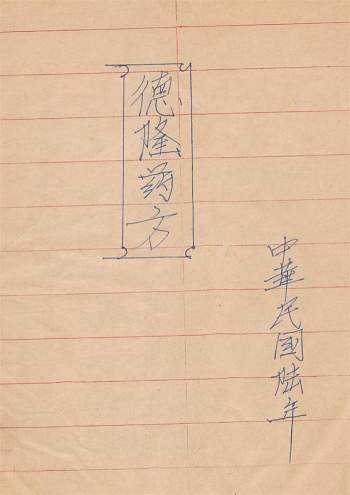 德隆药方
中華民國陆年